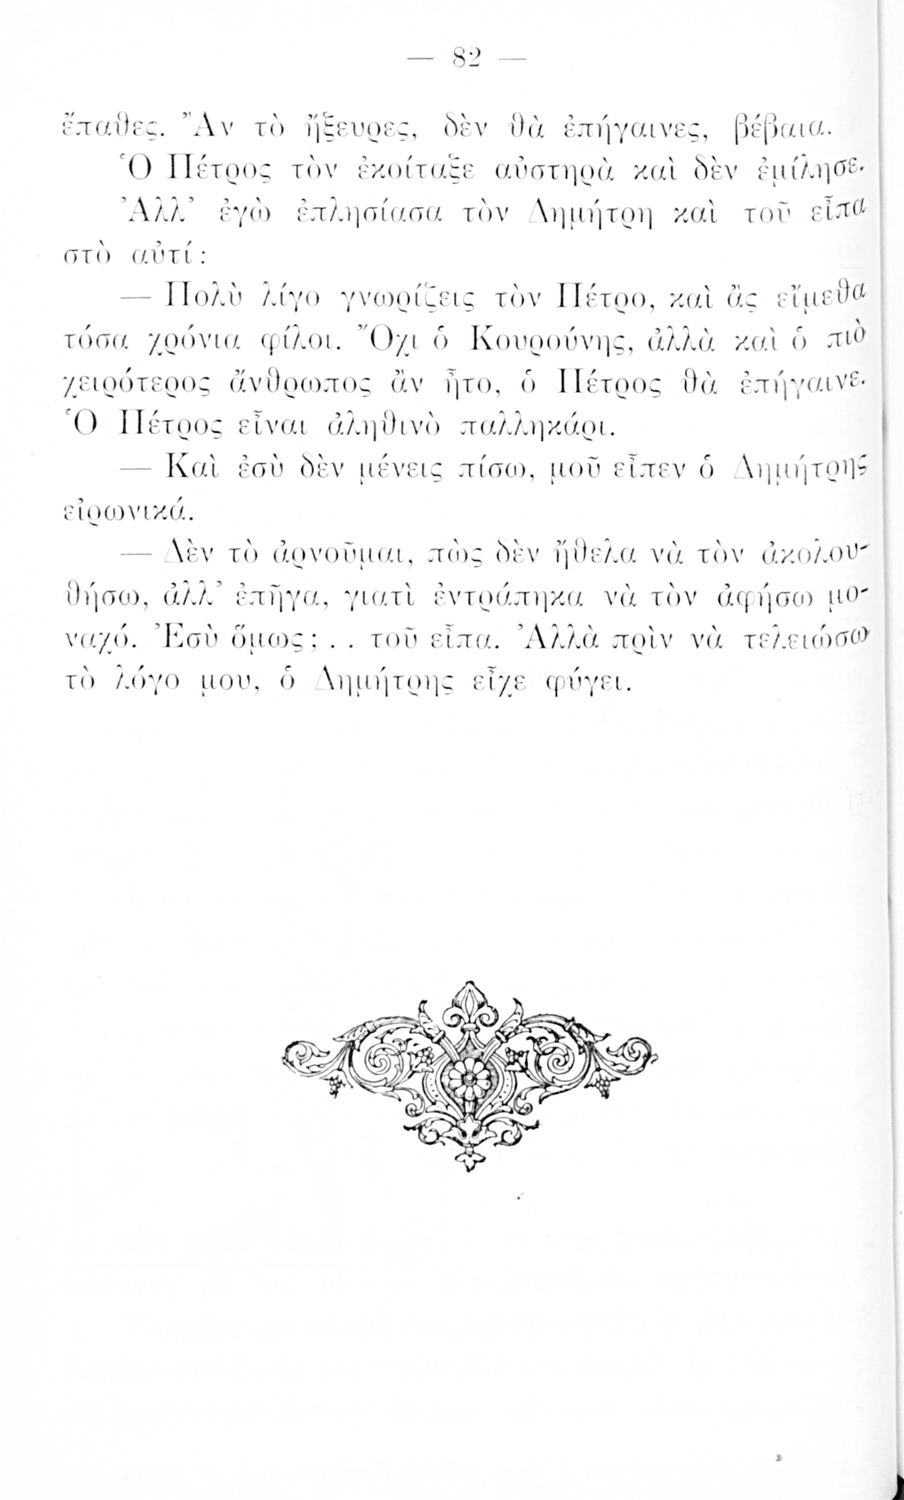 — 82 —
ἔπαθες. Ἂν τὸ ἤξευρες, δὲν θὰ ἐπήγαινες, βέβαια.
Ὁ Πέτρος τὸν ἐκοίταξε αὐστηρὰ καὶ δὲν ἐμίλησε.
Ἀλλ’ ἐγὼ ἐπλησίασα τὸν Δημήτρη καὶ τοῦ εἶπα
στὸ αὐτί:
— Πολὺ λίγο γνωρίζεις τὸν Πέτρο, καὶ ἂς εἴμεθα
τόσα χρόνια φίλοι. Ὄχι ὁ Κουρούνης, ἀλλὰ καὶ ὁ πιὸ
χειρότερος ἄνθρωπος ἂν ἦτο, ὁ Πέτρος θὰ ἐπήγαινε.
Ὁ Πέτρος εἶναι ἀληθινὸ παλληκάρι.
— Καὶ ἐσὺ δὲν μένεις πίσω, μοῦ εἶπεν ὁ Δημήτρης
εἰρωνικά.
— Δὲν τὸ ἀρνοῦμαι, πὼς δὲν ἤθελα νὰ τὸν ἀκολου-
θήσω, ἀλλ’ ἐπῆγα, γιατὶ ἐντράπηκα νὰ τὸν ἀφήσω μο-
ναχό. Ἐσὺ ὅμως; . . τοῦ εἶπα. Ἀλλὰ πρὶν νὰ τελειώσω
τὸ λόγο μου, ὁ Δημήτρης εἶχε φύγει.